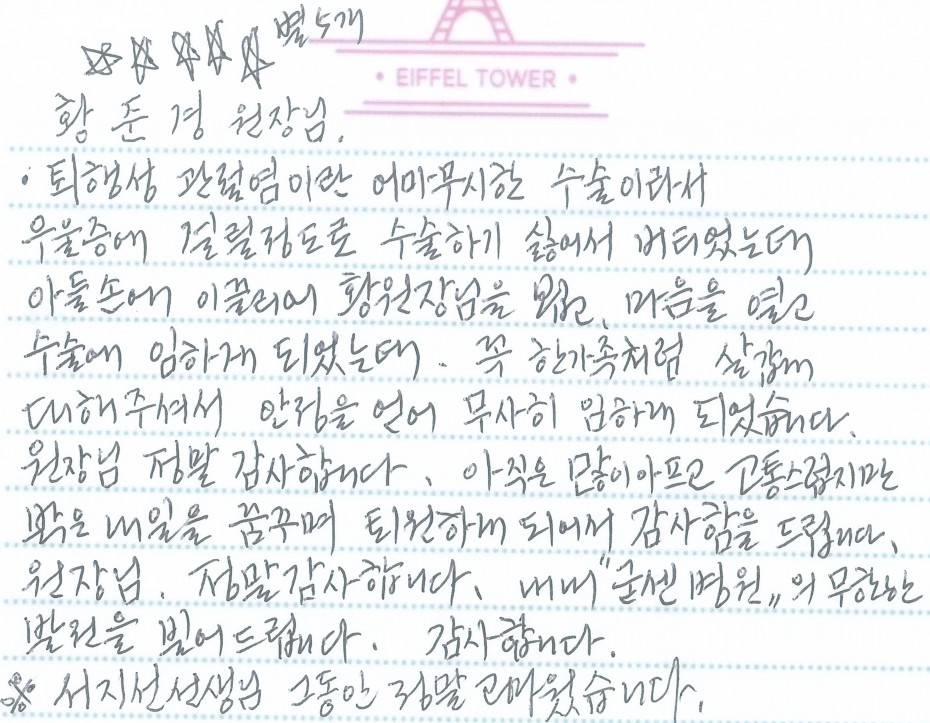 ☆☆☆☆☆ 별5개
• EIFFEL TOWER •
황 준 경 원장님.
· 퇴행성 관절염이란 어마무시한 수술이라서
우울증에 걸릴정도로 수술하기 싫어서 버티었는데
아들손에 이끌리어 황원장님을 뵙고, 마음을 열고
수술에 임하게 되었는데. 꼭 한가족처럼 살갑게
대해주셔서 안정을 얻어 무사히 임하게 되었습니다.
원장님 정말 감사합니다. 아직은 많이아프고 고통스럽지만
밝은 내일을 꿈꾸며 퇴원하게 되어서 감사함을 드립니다.
원장님. 정말감사합니다. 내내 "굳센병원"의 무한한
발전을 빌어드립니다. 감사합니다.
※ 서지선선생님 그동안 정말 고마웠습니다.